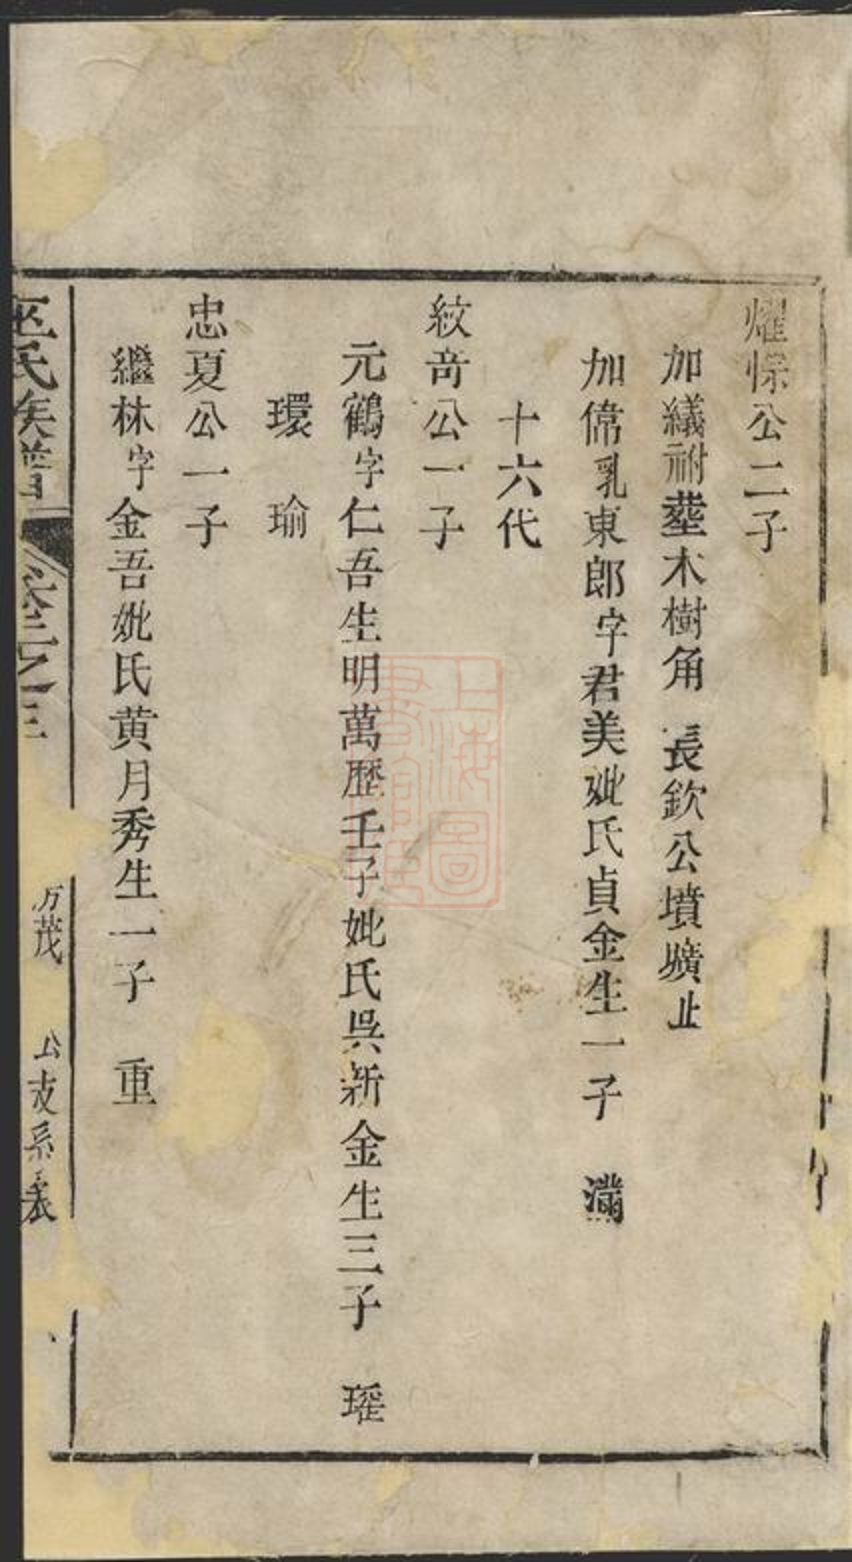 燿悰公二子
加纎祔塟木樹角 長欽公墳壙止
加偉乳東郎字君美妣氏貞金生一子 滿
十六代
紋奇公一子
元鶴字仁吾生明萬歷壬子妣氏吳新金生三子 璀
環 瑜
忠夏公一子
繼林字金吾妣氏黄月秀生一子 重
氏族譜 卷三之三 万茂 公支系表
上海圖書館藏